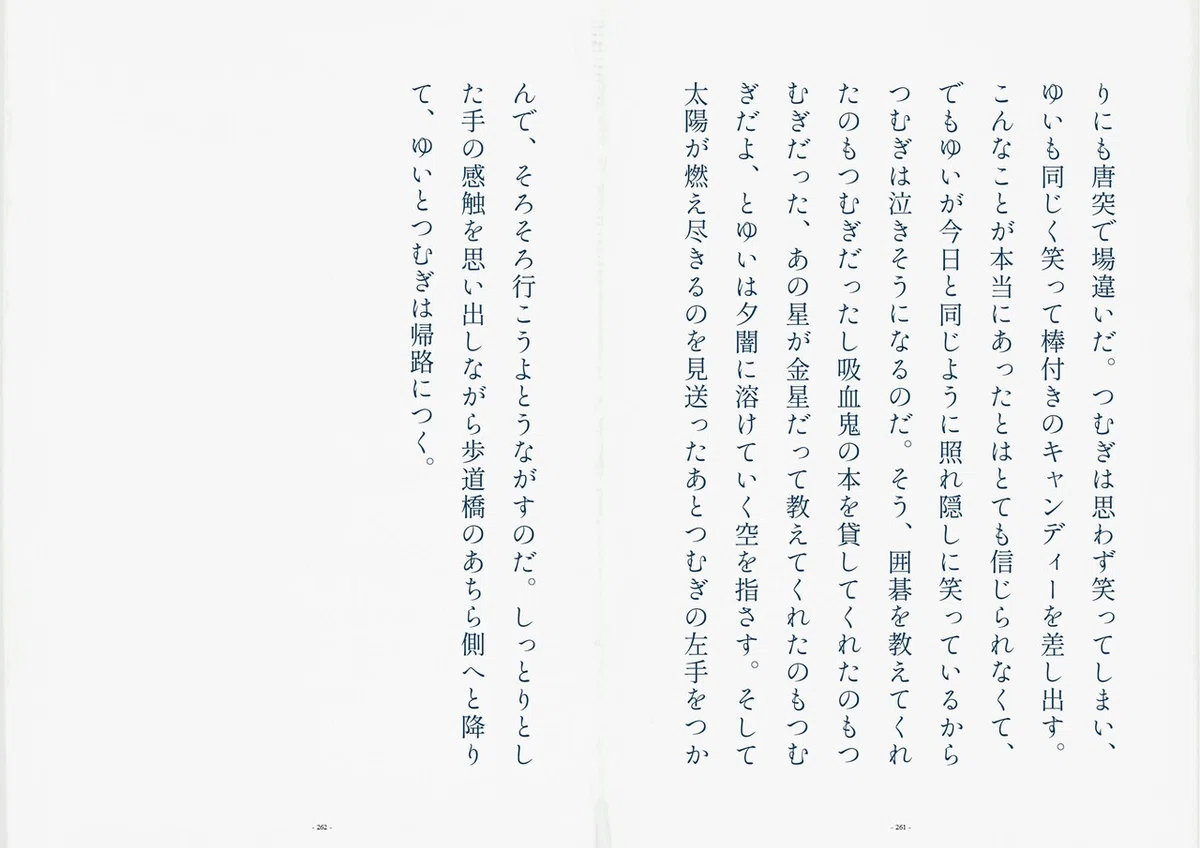 りにも唐突で場違いだ。つむぎは思わず笑ってしまい、
ゆいも同じく笑って棒付きのキャンディーを差し出す。
こんなことが本当にあったとはとても信じられなくて、
でもゆいが今日と同じように照れ隠しに笑っているから
つむぎは泣きそうになるのだ。そう、囲碁を教えてくれ
たのもつむぎだったし吸血鬼の本を貸してくれたのもつ
むぎだった、あの星が金星だって教えてくれたのもつむ
ぎだよ、とゆいは夕闇に溶けていく空を指さす。そして
太陽が燃え尽きるのを見送ったあとつむぎの左手をつか
- 261 -
んで、そろそろ行こうよとうながすのだ。しっとりとし
た手の感触を思い出しながら歩道橋のあちら側へと降り
て、ゆいとつむぎは帰路につく。
- 262 -